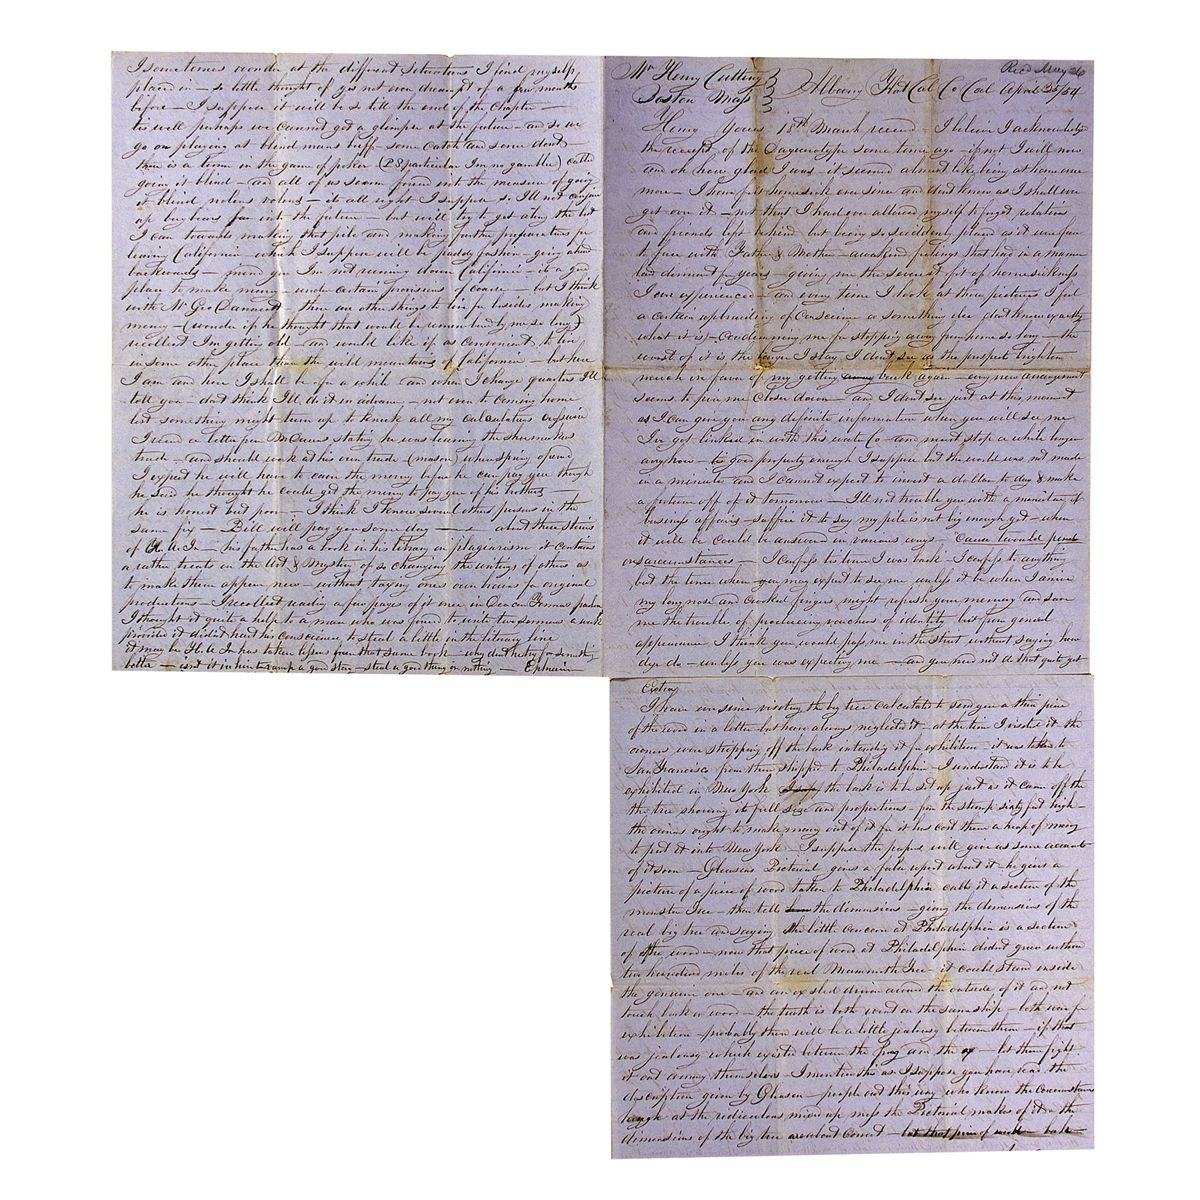 Recd May 26
Mr Henry Cutting
Boston Mass
Albany Flat Cal Co Cal April 25/54
Henry Yours 18th March received - I believe I acknowledged
the receipt of the Daguerotype some time ago - if not I will now
and oh how glad I was it seemed almost like being at home once
more - I have felt homesick ever since and dont know as I shall ever
get over it - not that I had ever allowed myself to forget relations
and friends left behind but being so suddenly placed as it were face
to face with Father & Mother - awakend feelings that had in a manner
laid dormant for years - giving me the severest fit of homesickness
I ever experienced - and every time I look at those pictures I feel
a certain upbraiding of Conscience or something else dont know exactly
what it is - Condemning me for stopping away from home so long - the
worst of it is the longer I stay I dont see as the prospect brightens
much in favor of my getting back again - every new arrangement
seems to pin me closer down - and I dont see just at this moment
as I can give you any definite information when you will see me
Ive got linked in with this water Co - and must stop a while longer
anyhow - tis good property enough I suppose but the world was not made
in a minute and I cannot expect to invest a dollar to day & make
a fortune off of it tomorrow - Ill not trouble you with a of
business affairs - suffice it to say my pile is not big enough yet - when
it will be could be answered in various ways - 'Cause twould
on sarcumstances - I confess tis time I was back - I confess to anything
but the time when you may expect to see me unless it be when I arrive
my long nose and crooked finger might refresh your memory and save
me the trouble of producing vouchers of identity but from general
appearance I think you would pass me in the street without saying how
dye do - unless you was expecting me - and you need not do that quite yet
Cutting
I have ever since visiting the big tree calculated to send you a thin piece
of the wood in a letter but have always neglected it - at the time I visited it the
owners were stripping off the bark intending it for exhibition - it was taken to
San Francisco from there shipped to Philadelphia - I understand it is to be
exhibited in New York the bark is to be set up just as it came off the
the tree showing its full size and proportions - from the stump sixty feet high -
the owners ought to make money out of it for it has cost them a heap of money
to get it into New York - I suppose the papers will give us some account
of it soon - Gleasons Pictorial gives a false report about it - he gives a
picture of a piece of wood taken to Philadelphia calls it a section of the
monster Tree - then tells the dimensions - giving the dimensions of the
real big tree and saying the little concern at Philadelphia is a section
of the wood - now that piece of wood at Philadelphia didnt grow within
two hundred miles of the real Mammoth Tree - it could stand inside
the genuine one - and an ox sled driven around the outside of it and not
touch bark or wood - the truth is both went on the same ship - both were for
exhibition - probably there will be a little jealousy between them - if that
was jealousy which existed between the frog and the ox - let them fight
it out among themselves - I mention this as I suppose you have read the
description given by Gleason - people out this way who know the circumstances
laugh at the ridiculous mixed up mess the Pictorial makes of it - the
dimensions of the big tree are about correct - but that piece of bark -
I sometimes wonder at the different situations I find myself
placed in - so little thought of yes not even dreampt of a few months
before - I suppose it will be so till the end of the Chapter -
tis well perhaps we cannot get a glimpse at the future - and so we
go on playing at blind mans buff - some catch and some dont -
there is a term in the game of poker (PS particular Im no gambler) called
going it blind - and all of us seem forced into the measure of going
it blind nolens volens - its all right I suppose so Ill not conjure
up bugbears far into the future - but will try to get along the best
I can towards making that pile and making further preparations for
leaving California - which I suppose will be paddy fashion - going ahead
backwards - mind you Im not running down California - its a good
place to make money - under certain provisions of course - but I think
with Mr Geo - there are other things to live for besides making
money - (wonder if he thought that would be remembered by me so long) I
recollect Im getting old - and would like if as convenient to live
in some other place than the wild mountains of California - but here
I am and here I shall be for a while - and when I change quarters Ill
tell you - dont think Ill do it in advance - not even to coming home
lest something might turn up to knock all my calculations
I recd a letter from stating he was learning the shoemakers
trade - and should work at his own trade (mason) when spring opened
I expect he will have to earn the money before he can pay you though
he said he thought he could get the money to pay you of his brothers -
he is honest but poor - I think I know several other persons in the
same fix - Bill will pay you some day - about those stories
of H. A. Jr - his father has a book in his library on plagiarism it contains
a rather treatise on the Art & Mystery of so changing the writings of others as
to make them appear new - without taxing ones own brains for original
productions - I recollect reading a few pages of it once in Deacon
I thought it quite a help to a man who was forced to write two sermons a week
provided it didnt hurt his conscience to steal a little in the literary line
it may be H. A. Jr has taken lessons from that same book - why dont he try for something
better - isnt it in him to vamp a good story - steal a good thing or nothing Ephraim